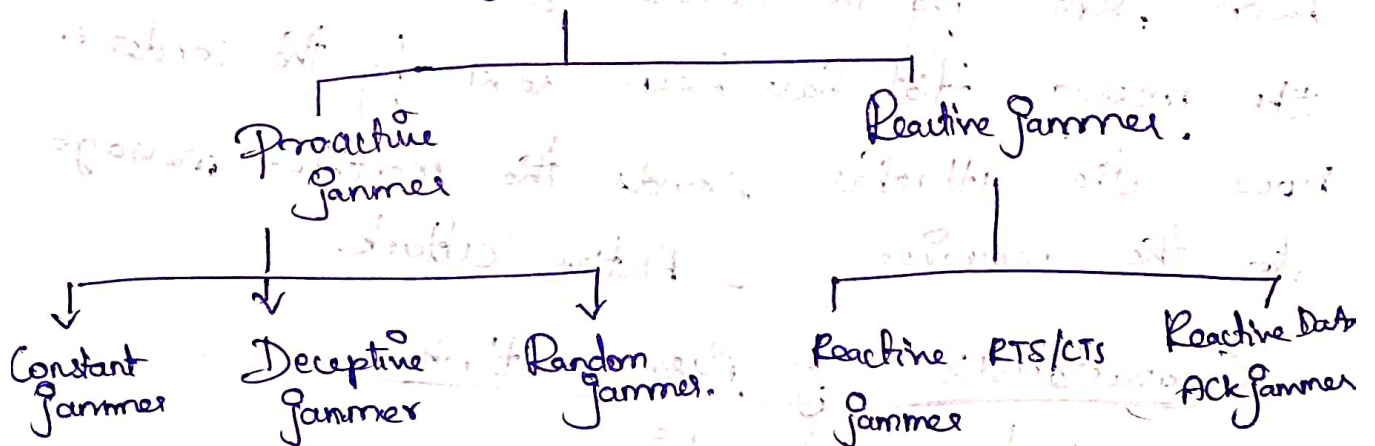 Proactive
jammer
Reactive jammer.
Constant
jammer
Deceptive
jammer
Random
jammer.
Reactive RTS/CTS
jammer
Reactive Data
ACK jammer